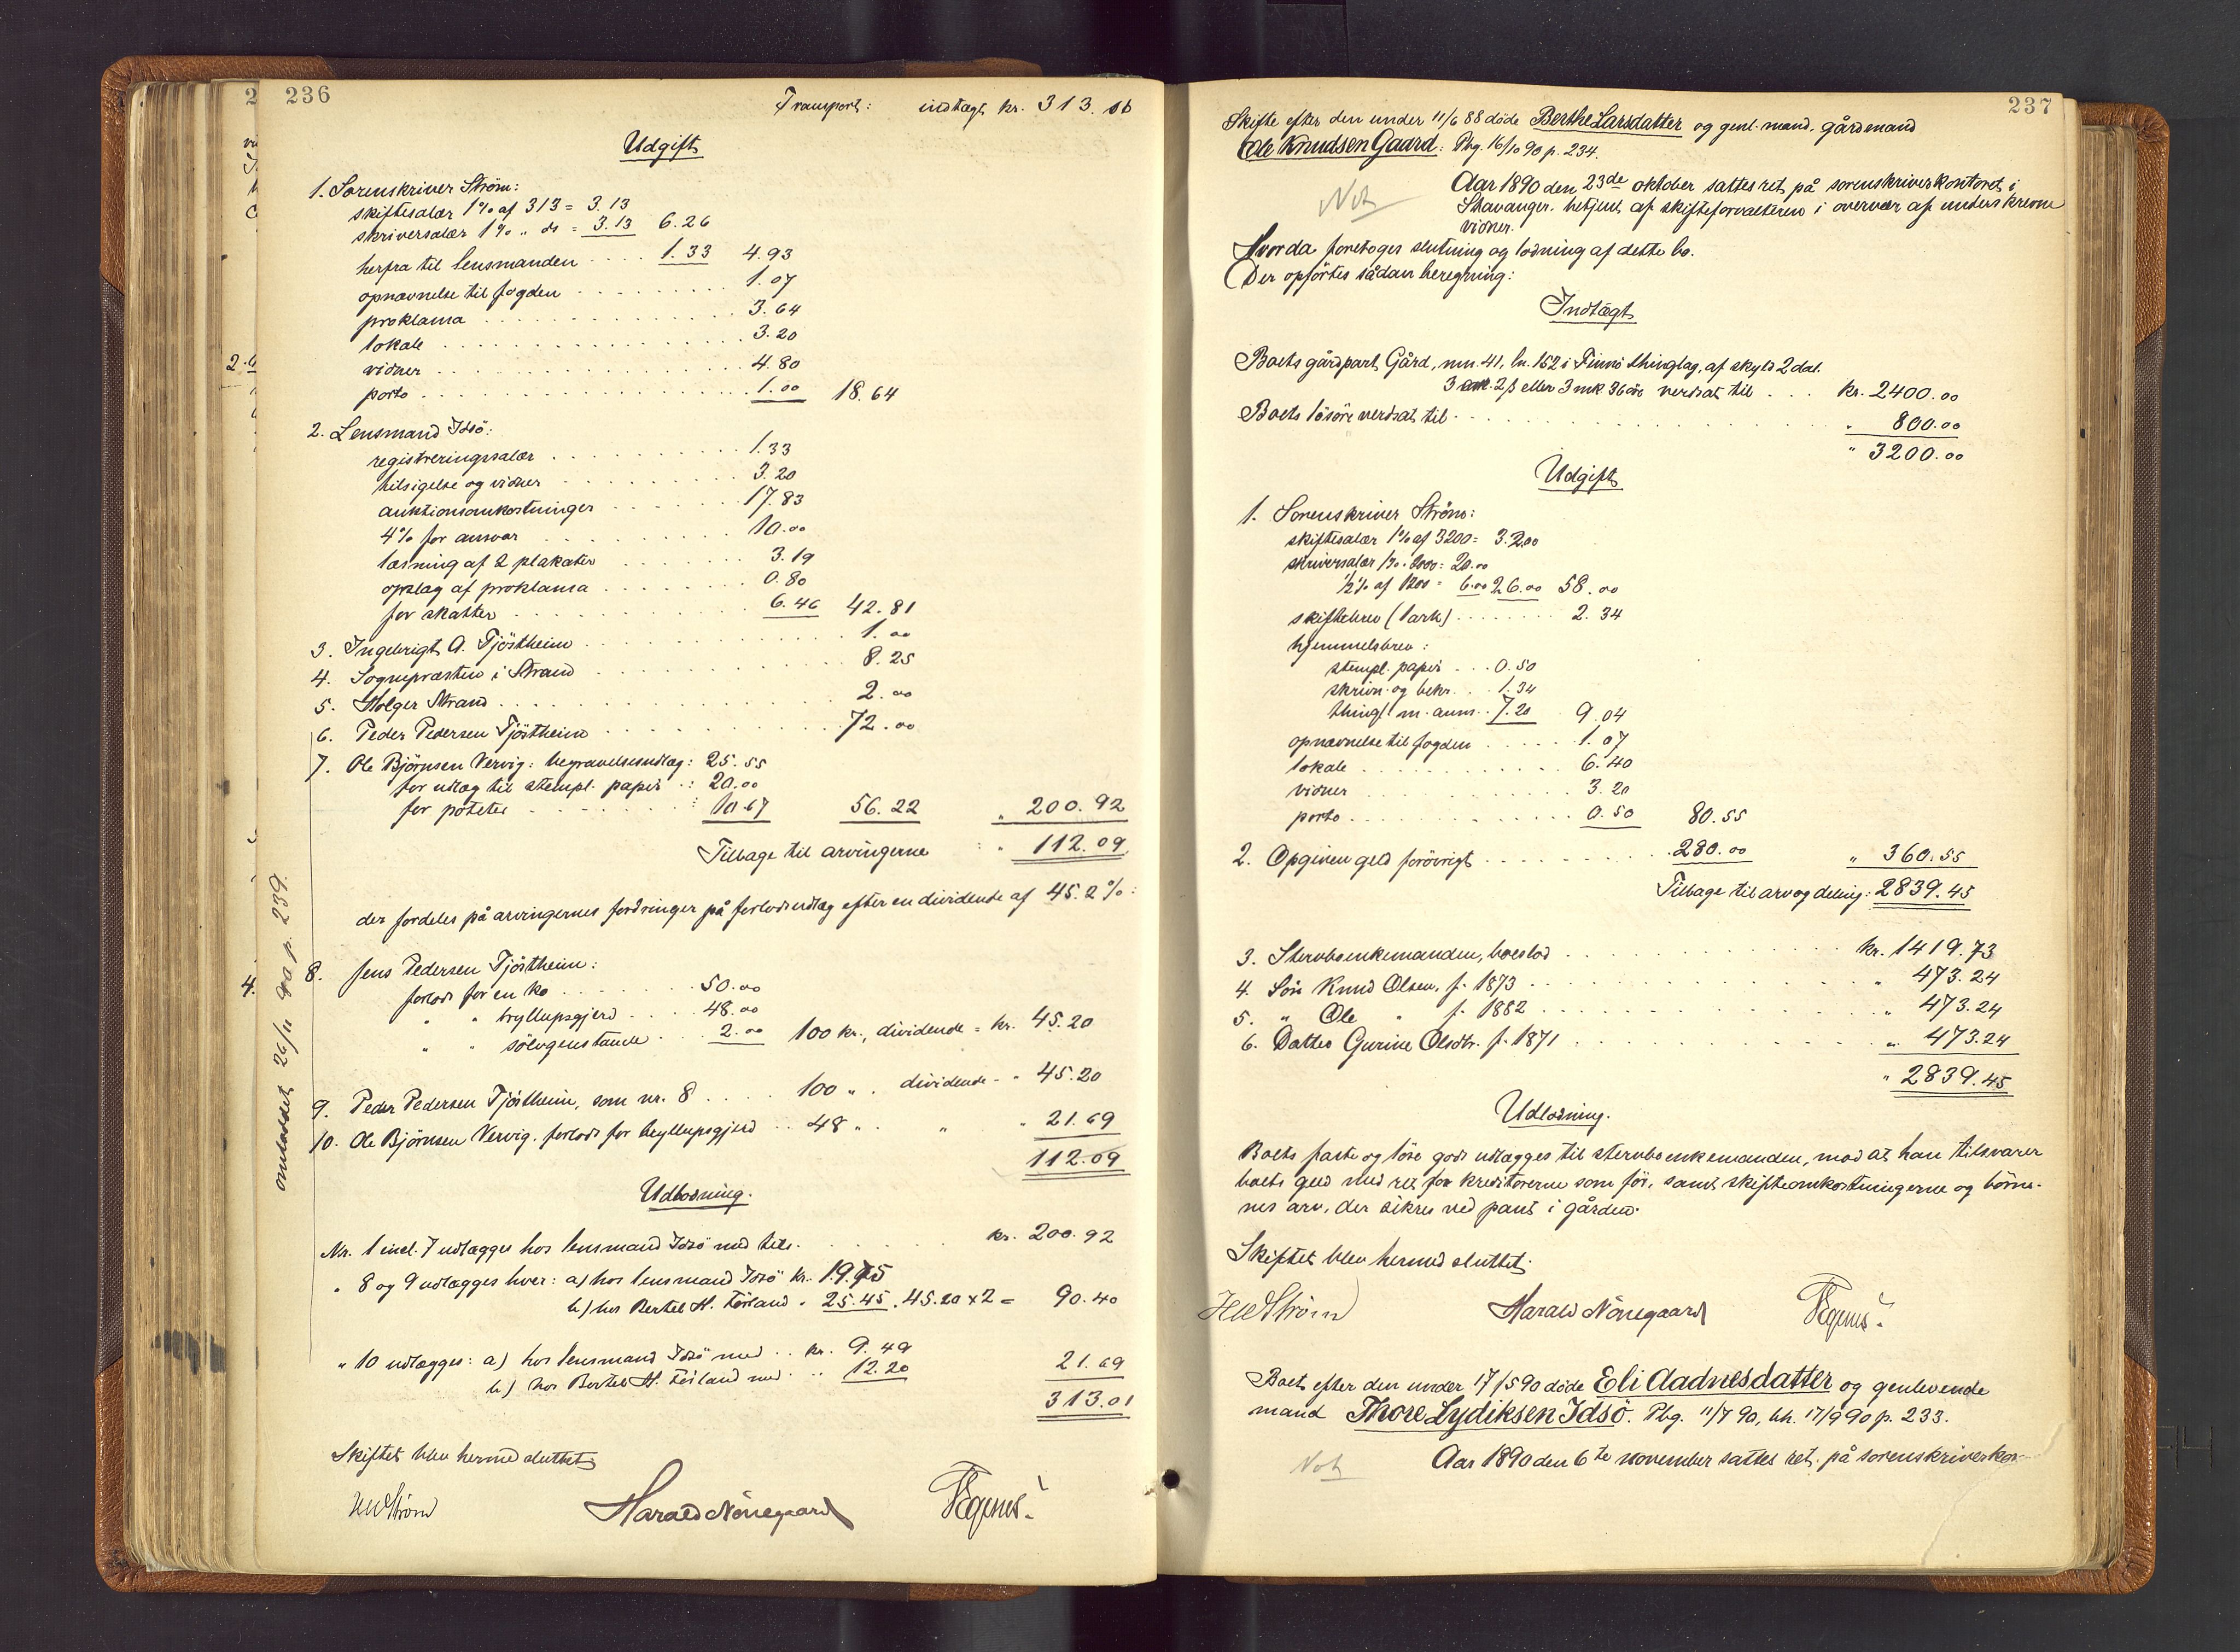 236
Transport: indtægt kr. 313.01
Udgift
1. Sorenskriver Ström:
skiftesalær 1% af 313 = 3.13
skriversalær 1% " ds = 3.13 6.26
herfra til lensmanden . . . . 1.33 4.93
opnævnelse til fogden . . . . 1.07
proklama . . . . 3.64
lokale . . . . 3.20
vidner . . . . 4.80
porto . . . . 1.00 18.64
2. Lensmand Idsö:
registreringssalær . . . . 1.33
tilsigelse og vidner . . . . 3.20
auktionsomkostninger . . . . 17.83
4% for ansvar . . . . 10.00
læsning af 2 plakater . . . . 3.19
opslag af proklama . . . . 0.80
for skatter . . . . 6.46 42.81
3. Ingebrigt A. Tjöstheim . . . . 1.00
4. Sognepræsten i Strand . . . . 8.25
5. Holger Strand . . . . 2.00
6. Peder Pedersen Tjöstheim . . . . 72.00
7. Ole Björnsen Vervig: begravelsesudlæg: 25.55
for udlæg til stempl. papir . : 20.00
for poteter . . . . : 10.67 56.22 " 200.92
Tilbage til arvingerne : " 112.09
der fordeles på arvingernes fordringer på forlodsudlæg efter en dividende af 45.2%:
8. Jens Pedersen Tjöstheim:
forlods for en ko . . . . 50.00
" " bryllupsgjerd . . . . 48.00
" " sölvgenstande . 2.00 100 kr., dividende = kr. 45.20
9. Peder Pedersen Tjöstheim, som nr. 8 . . . . 100 " . dividende - " 45.20
10. Ole Björnsen Vervig, forlods for bryllupsgjerd . . 48 " . " " 21.69
112.09
Udlodning.
Nr. 1 incl. 7 udlægges hos lensmand Idsö med tils. . . . . kr. 200.92
" 8 og 9 udlægges hver: a) hos lensmand Idsö kr. 19.75
b) hos Bertel H. Förland " 25.45. 45.20 x 2 = 90.40
" 10 udlægges: a) hos lensmand Idsö med . . kr. 9.49
b) hos Bertel H. Förland med . . . 12.20 21.69
313.01
Skiftet blev hermed sluttet
HWStröm Harald Nönegaard
omloddet 26/11 90 p. 239.
237
Skifte efter den under 11/6 88 döde Berthe Larsdatter og genl. mand, gårdmand
Ole Knudsen Gaard: Pbg. 16/10 90 p. 234.
Not
Aar 1890 den 23de oktober sattes ret på sorenskriverkontoret i
Stavanger, betjent af skifteforvalteren i overvær af underskrevne
vidner.
Hvorda foretoges slutning og lodning af dette bo.
Der opförtes sådan beregning:
Indtægt
Boets gårdpart Gård, mn. 41, ln. 152 i Finnö thinglag, af skyld 2 dal.
3 ort. 2 β eller 3 mk 36 öre verdsat til . . . kr. 2400.00
Boets lösöre verdsat til . . . . " 800.00
" 3200.00
Udgift
1. Sorenskriver Ström:
skiftesalær 1% af 3200 = 32.00
skriversalær 1% " 2000 = 20.00
1/2% af 1200 = 6.00 26.00 58.00
skiftebrev (1 ark) . . . . 2.34
hjemmelsbrev :
stempl. papir . . . 0.50
skrivn. og bekr. . . 1.34
thingl. m. anm. . 7.20 9.04
opnævnelse til fogden . . . . 1.07
lokale . . . . 6.40
vidner . . . . 3.20
porto . . . . 0.50 80.55
2. Opgiven gjeld forövrigt . . . . 280.00 " 360.55
Tilbage til arv og deling: 2839.45
3. Stervboenkemanden, boeslod . . . . kr. 1419.73
4. Sön Knud Olsen, f. 1873 . . . . " 473.24
5. " Ole " f. 1882 . . . . " 473.24
6. Datter Gurine Olsdtr. f. 1871 . . . . " 473.24
" 2839.45
Udlodning.
Boets faste og löse gods udlægges til stervboenkemanden, mod at han tilsvarer
boets gjeld med ret for kreditorerne som för, samt skifteomkostningerne og börne-
nes arv, der sikres ved pant i gården.
Skiftet blev hermed sluttet.
HWStröm Harald Nönegaard
Boet efter den under 17/5 90 döde Eli Aadnesdatter og genlevende
mand Thore Lydiksen Idsö. Pbg. 11/7 90, bh. 17/9 90 p. 233.
Not
Aar 1890 den 6te november sattes ret på sorenskriverkon-